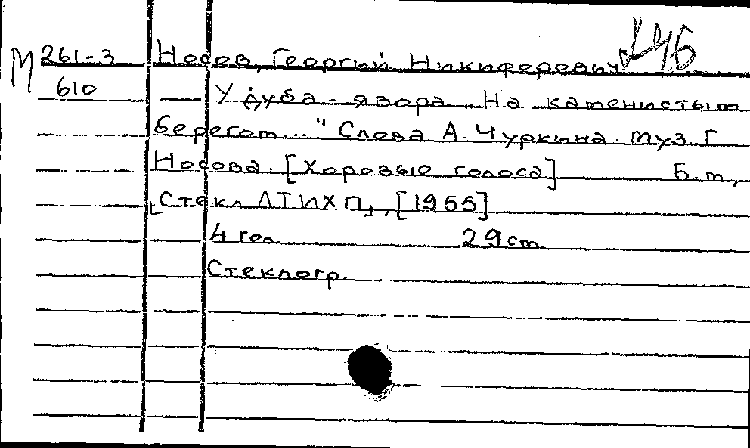 М 261-3 Носов, Георгий Никифорович
610 У дуба-явора „На каменистым
берегом..." Слова А. Чуркина. Муз. Г.
Носова. [Хоровые голоса] Б.м.,
[Стекл. ЛТИХП], [1955]
4 гол. 29 cm.
Стеклогр.